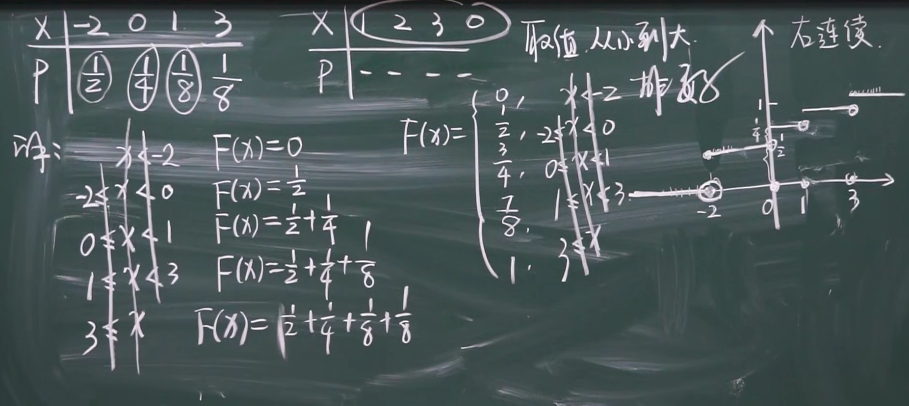 X -2 0 1 3
P 1/2 1/4 1/8 1/8
X 1 2 3 0
P - - - -
取值从小到大
排好
右连续.
解:
x<-2 F(x)=0
-2≤x<0 F(x)=1/2
0≤x<1 F(x)=1/2+1/4
1≤x<3 F(x)=1/2+1/4+1/8
3≤x F(x)=1/2+1/4+1/8+1/8
F(x)={
0, x<-2
1/2, -2≤x<0
3/4, 0≤x<1
7/8, 1≤x<3
1, 3≤x
1
1/2
-2 0 1 3